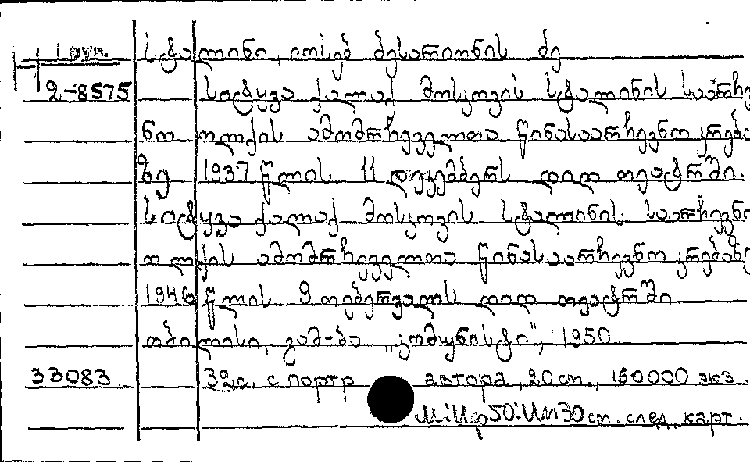 სტალინი, იოსებ ბესარიონის ძე
2-8575 სიტყვა ქალაქ მოსკოვის სტალინის საარჩევ
ნო ოლქის ამომრჩეველთა წინასაარჩევნო კრება
ზე 1937 წლის 11 დეკემბერს დიდ თეატრში.
სიტყვა ქალაქ მოსკოვის სტალინის საარჩევნო
ოლქის ამომრჩეველთა წინასაარჩევნო კრებაზე
1946 წლის 9 თებერვალს დიდ თეატრში
თბილისი, გამ-ბა „კომუნისტი", 1950
33083 32с. с портр автора, 20 см., 150000 экз.
след. карт.